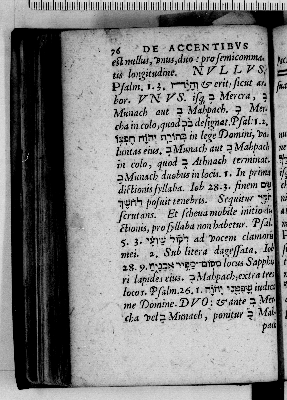 76 DE ACCENTIBVS
est nullus, vnus, duo: pro semicomma-
tis longitudine. NVLLVS,
Psalm. 1. 3. והיה & erit, sicut ar-
bor. VNVS. isq́ ב Mercra, ב
Munach aut ב Mahpach. ב Mer-
cha in colo, quod ב designat. Psal. 1. 2.
בתורת יהוה חפצו in lege Domini, vo-
luntas eius. ב Munach aut ב Mahpach
in colo, quod ב Athnach terminat.
ב Munach duobus in locis. 1. In prima
dictionis syllaba. Iob 28. 3. finem שם
posuit tenebris. Sequitur לחשך
scrutans. Et scheua mobile initio di-
ctionis, pro syllaba non habetur. Psal.
5. 3. לקול שועי ad vocem clamoris
mei. 2. Sub litera dagessata, Iob
28. 9. מקום־ספיר אבניה locus Sapphi-
ri lapides eius. ב Mahpach, extra tres
locos. Psalm. 26. 1. שפטני יהוה iudica
me Domine. DVO: & ante ב Mer-
cha vel ב Munach, ponitur ב Mah-
pach